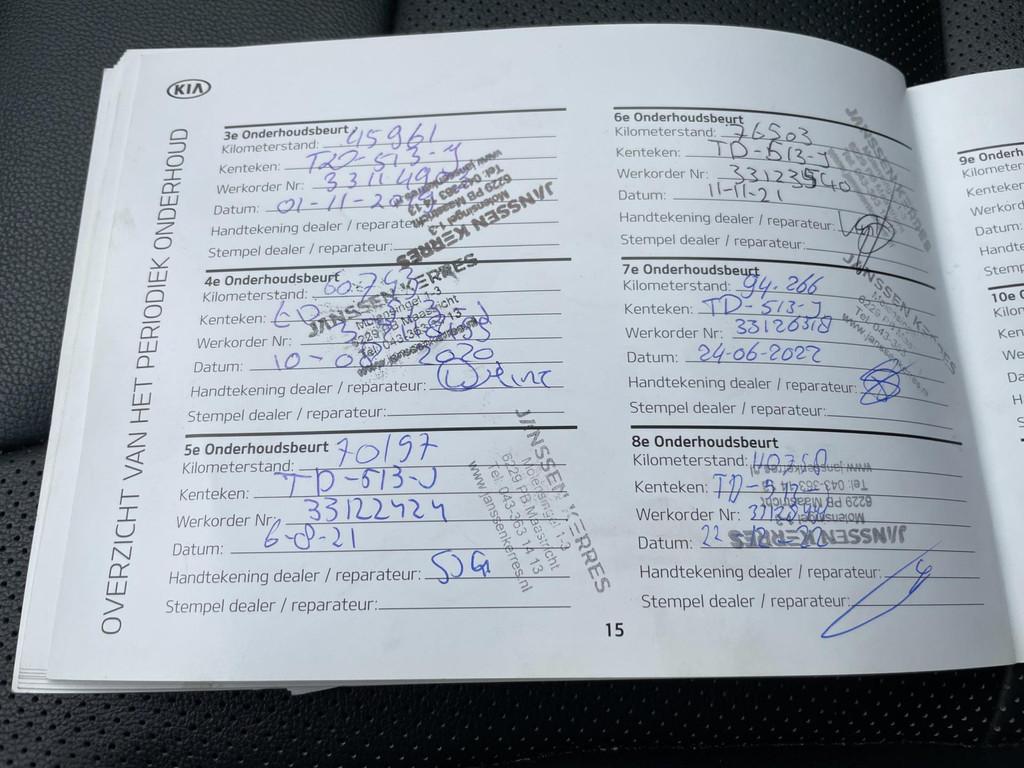 KIA
OVERZICHT VAN HET PERIODIEK ONDERHOUD
3e Onderhoudsbeurt
Kilometerstand: 45961
Kenteken: TD-513-J
Werkorder Nr:
Datum: 01-11-
Handtekening dealer / reparateur:
Stempel dealer / reparateur:
JANSSEN KERRES
Molensingel 1-3
6229 PB Maastricht
Tel: 043-363 14 13
4e Onderhoudsbeurt
Kilometerstand: 60.743
Kenteken:
Werkorder Nr:
Datum: 10- 2020
Handtekening dealer / reparateur:
Stempel dealer / reparateur:
JANSSEN KERRES
Molensingel 1-3
6229 PB Maastricht
Tel: 043-363 14 13
www.janssenkerres.nl
5e Onderhoudsbeurt
Kilometerstand: 70197
Kenteken: TD-513-J
Werkorder Nr: 33122424
Datum: 6-8-21
Handtekening dealer / reparateur:
Stempel dealer / reparateur:
JANSSEN KERRES
Molensingel 1-3
6229 PB Maastricht
Tel: 043-363 14 13
www.janssenkerres.nl
6e Onderhoudsbeurt
Kilometerstand: 76503
Kenteken: TD-513-J
Werkorder Nr: 33123540
Datum: 11-11-21
Handtekening dealer / reparateur:
Stempel dealer / reparateur:
7e Onderhoudsbeurt
Kilometerstand: 94.266
Kenteken: TD-513-J
Werkorder Nr: 33126318
Datum: 24-06-2022
Handtekening dealer / reparateur:
Stempel dealer / reparateur:
JANSSEN KERRES
8e Onderhoudsbeurt
Kilometerstand:
Kenteken:
Werkorder Nr:
Datum: 22-12-22
Handtekening dealer / reparateur:
Stempel dealer / reparateur:
www.janssenkerres.nl
Tel: 043-363 14 13
6229 PB Maastricht
Molensingel 1-3
JANSSEN KERRES
15
9e Onderh
Kilometer
Kenteken
Werkord
Datum:
Handte
Stemp
10e O
Kilon
Ken
We
Da
H
S